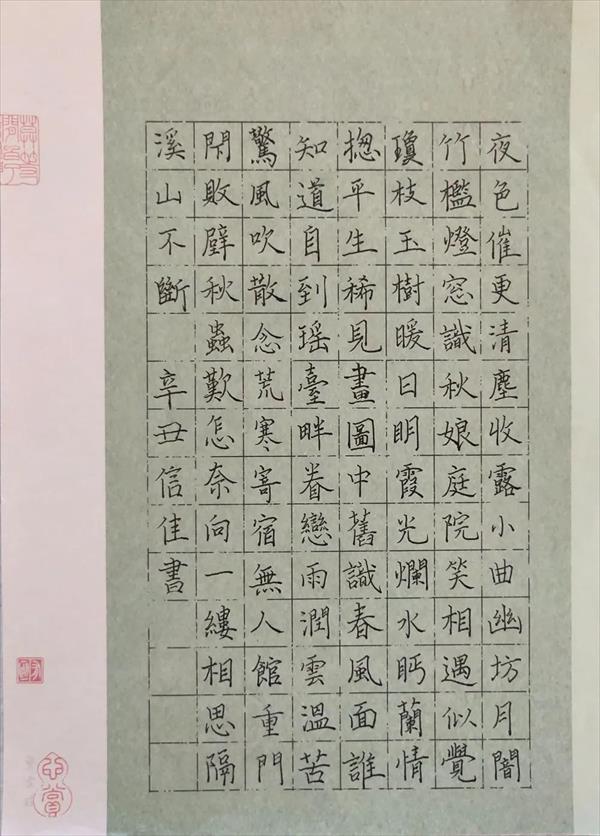 夜色催更清塵收露小曲幽坊月闇
竹檻燈窓識秋娘庭院笑相遇似覺
瓊枝玉樹暖日明霞光爛水眄蘭情
揔平生稀見畫圖中舊識春風面誰
知道自到瑶臺畔眷戀雨潤雲溫苦
驚風吹散念荒寒寄宿無人館重門
閇敗壁秋蟲歎怎奈向一縷相思隔
溪山不斷 辛丑信佳書